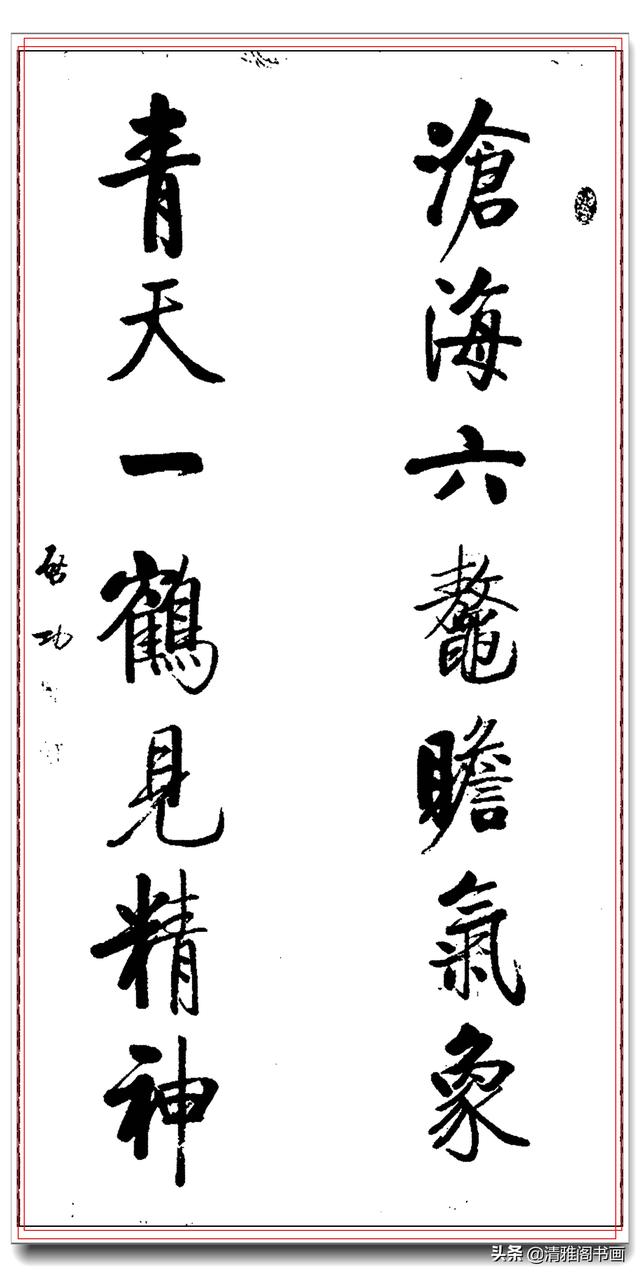 滄海六鼇瞻氣象
青天一鶴見精神
啟功
头条 @清雅阁书画